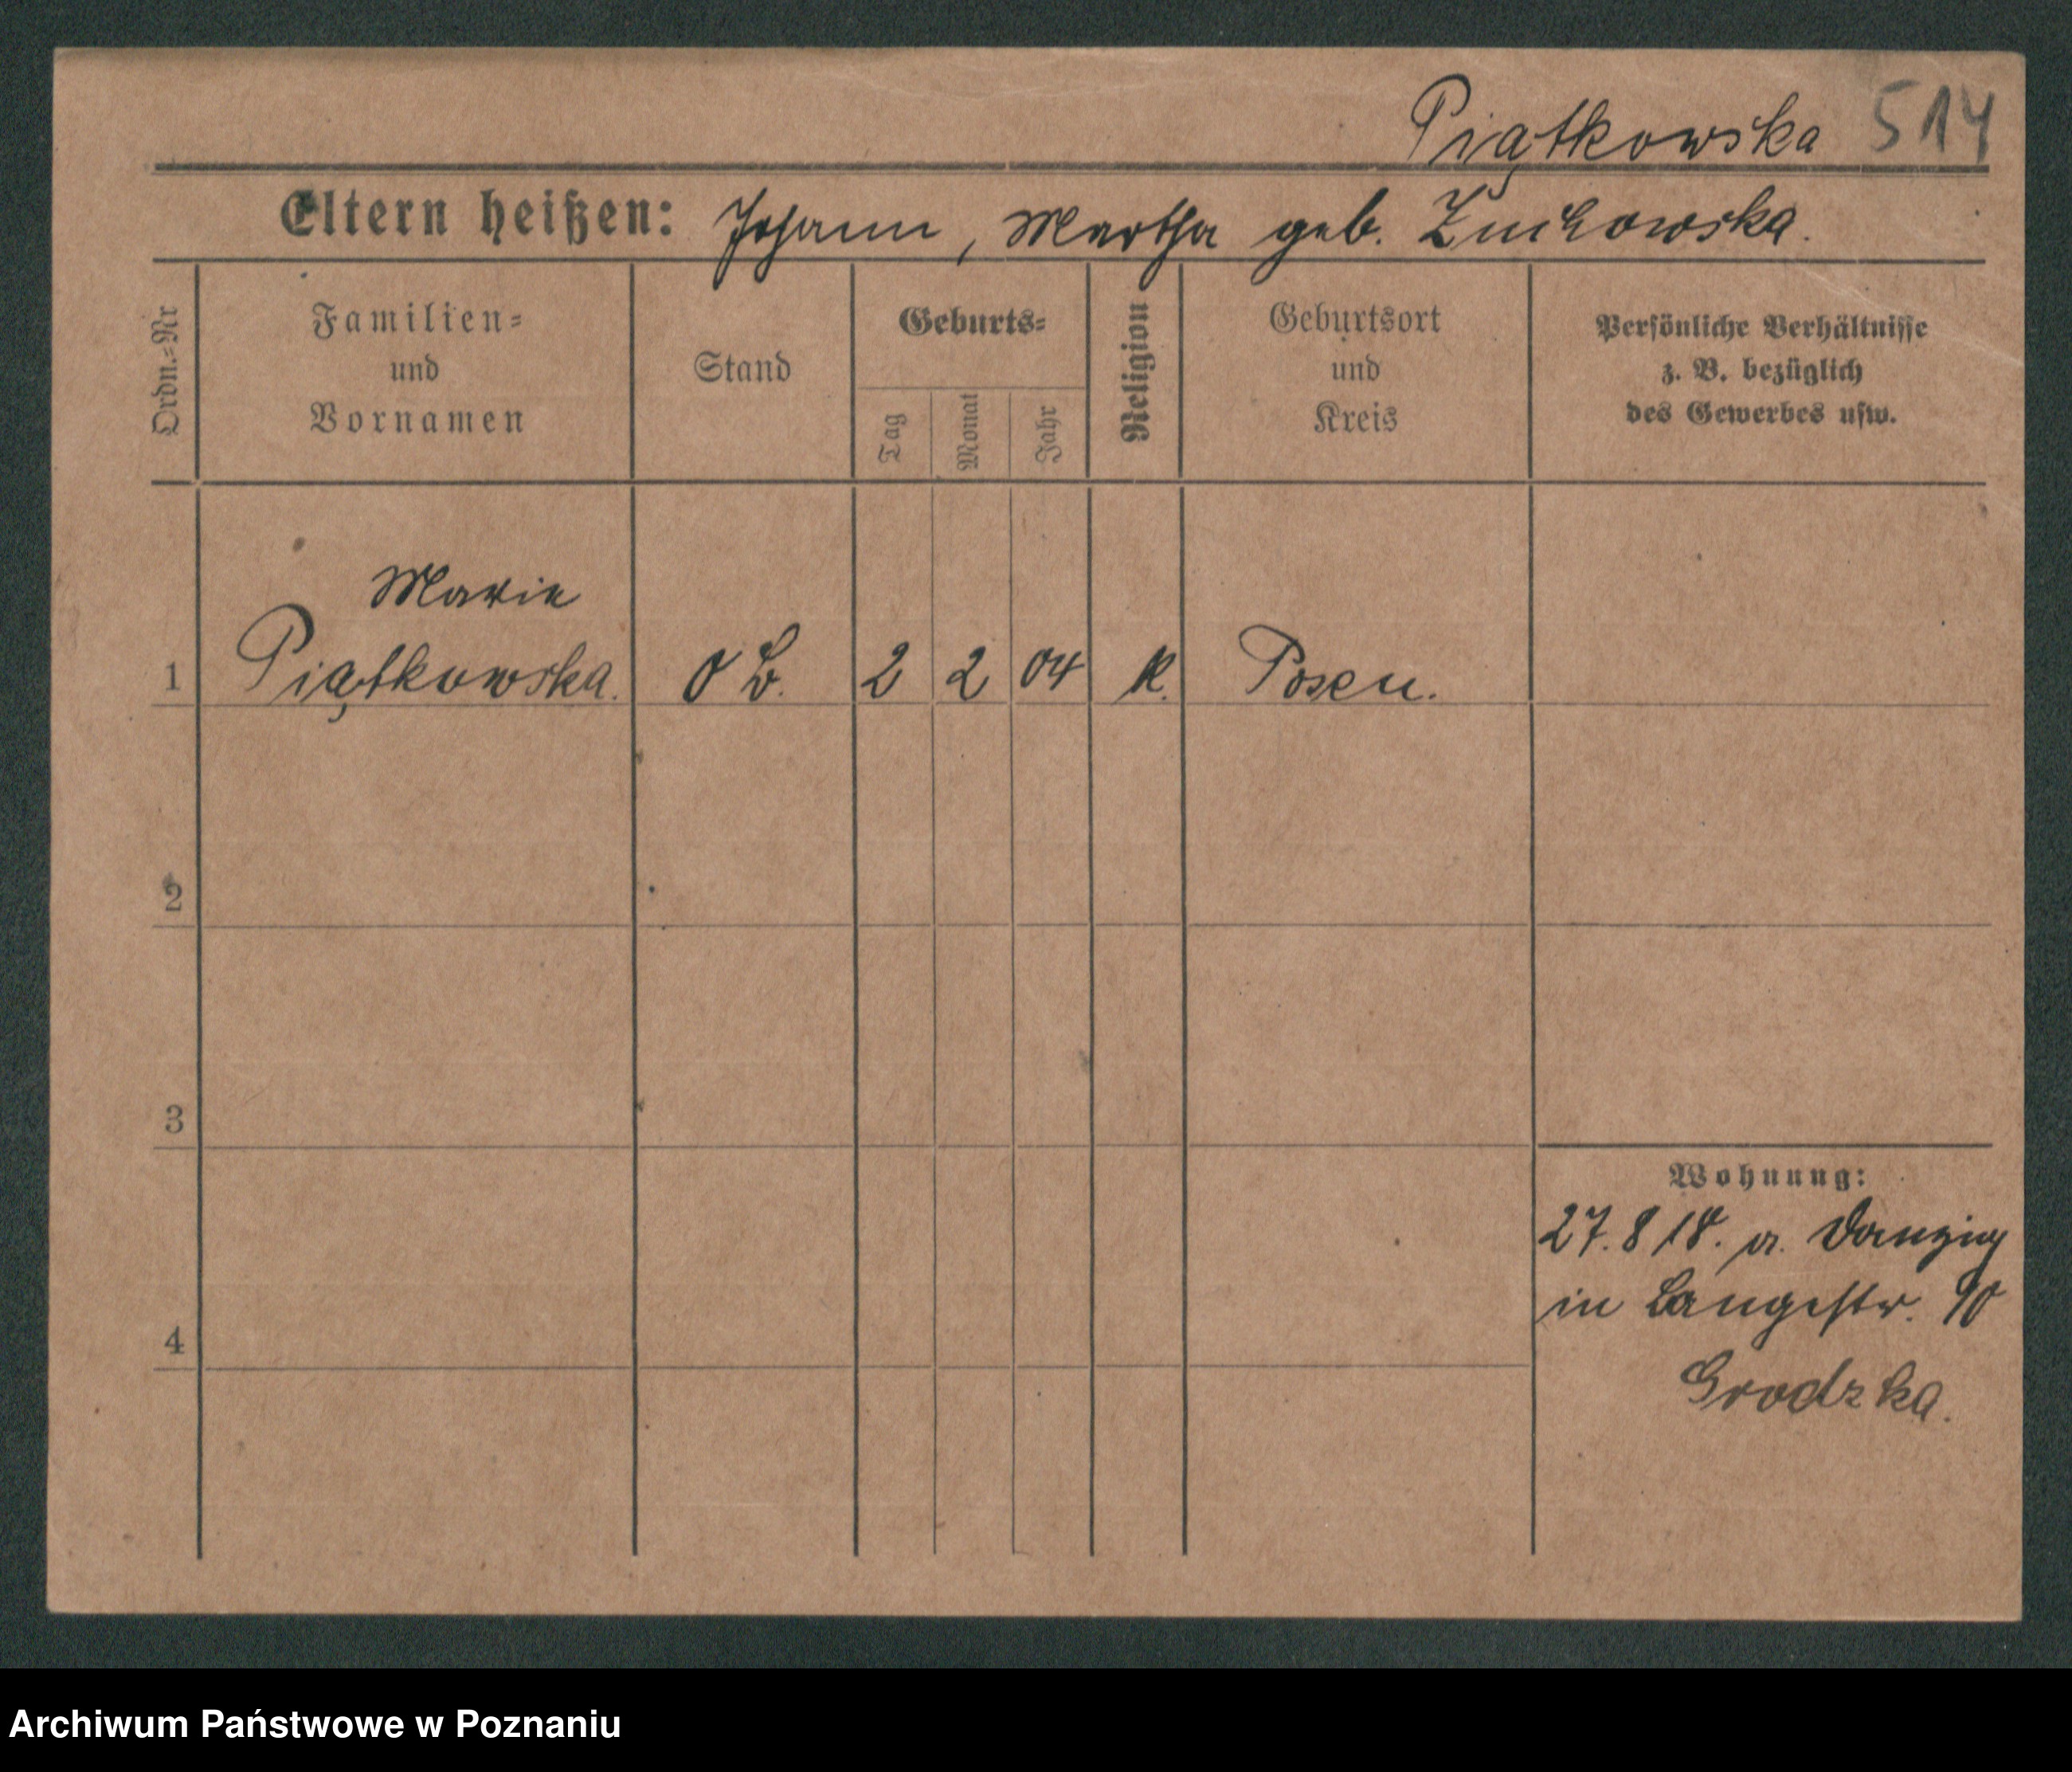 Piątkowska 514
Eltern heißen: Johann, Martha geb. Żuchowska.
Ordn.=Nr
Familien=
und
Vornamen
Stand
Geburts=
Tag
Monat
Jahr
Religion
Geburtsort
und
Kreis
Persönliche Verhältnisse
z. B. bezüglich
des Gewerbes usw.
Marie
1 Piątkowska. O L. 2 2 04 K. Posen.
2
3
4
Wohnung:
27. 8 18. a. Danzig
in Langestr. 90
Grodzka.
Archiwum Państwowe w Poznaniu